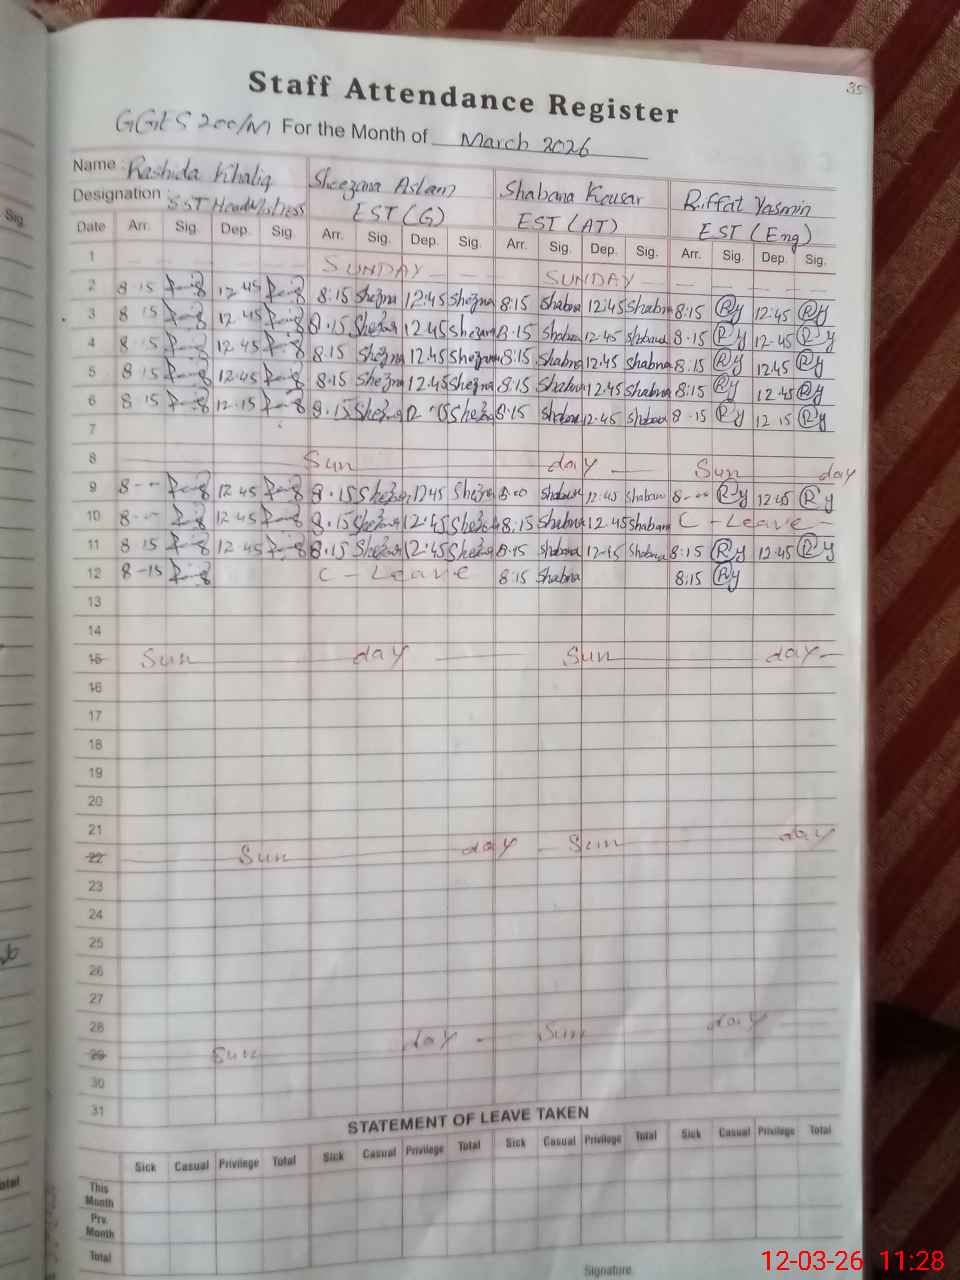 35
Staff Attendance Register
GGES 200/M For the Month of March 2026
Name : Rashida Khaliq Sheezma Aslam Shabana Kousar Riffat Yasmin
Designation : SST HeadMistress EST (G) EST (AT) EST (Eng)
Date Arr. Sig. Dep. Sig. Arr. Sig. Dep. Sig. Arr. Sig. Dep. Sig. Arr. Sig. Dep. Sig.
1 SUNDAY SUNDAY
2 8 15 12 45 8:15 12:45 8:15 Shabana 12:45 Shabana 8:15 Ry 12:45 Ry
3 8 15 12 45 8.15 12.45 8.15 Shabana 12.45 Shabana 8.15 Ry 12.45 Ry
4 8 15 12.45 8.15 12.45 8:15 Shabana 12.45 Shabana 8:15 Ry 12.45 Ry
5 8 15 12.45 8.15 12.45 8:15 Shabana 12.45 Shabana 8:15 Ry 12.45 Ry
6 8 15 12.15 8.15 8:15 Shabana 12.45 Shabana 8.15 Ry 12.15 Ry
7
8 Sun day Sun day
9 8 -- 12 45 8.15 12 45 8:00 Shabana 12:45 Shabana 8 -- Ry 12:45 Ry
10 8 -- 12.45 8.15 12.45 8:15 Shabana 12.45 Shabana C - Leave -
11 8 15 12 45 8.15 12.45 8.15 Shabana 12-45 Shabana 8:15 Ry 12.45 Ry
12 8-15 C - Leave 8:15 Shabana 8:15 Ry
13
14
15 Sun day Sun day
16
17
18
19
20
21
22 Sun day Sun day
23
24
25
26
27
28
29 Sun day Sun day
30
31
STATEMENT OF LEAVE TAKEN
Sick Casual Privilege Total Sick Casual Privilege Total Sick Casual Privilege Total Sick Casual Privilege Total
This Month
Prv. Month
Total
Signature
12-03-26 11:28